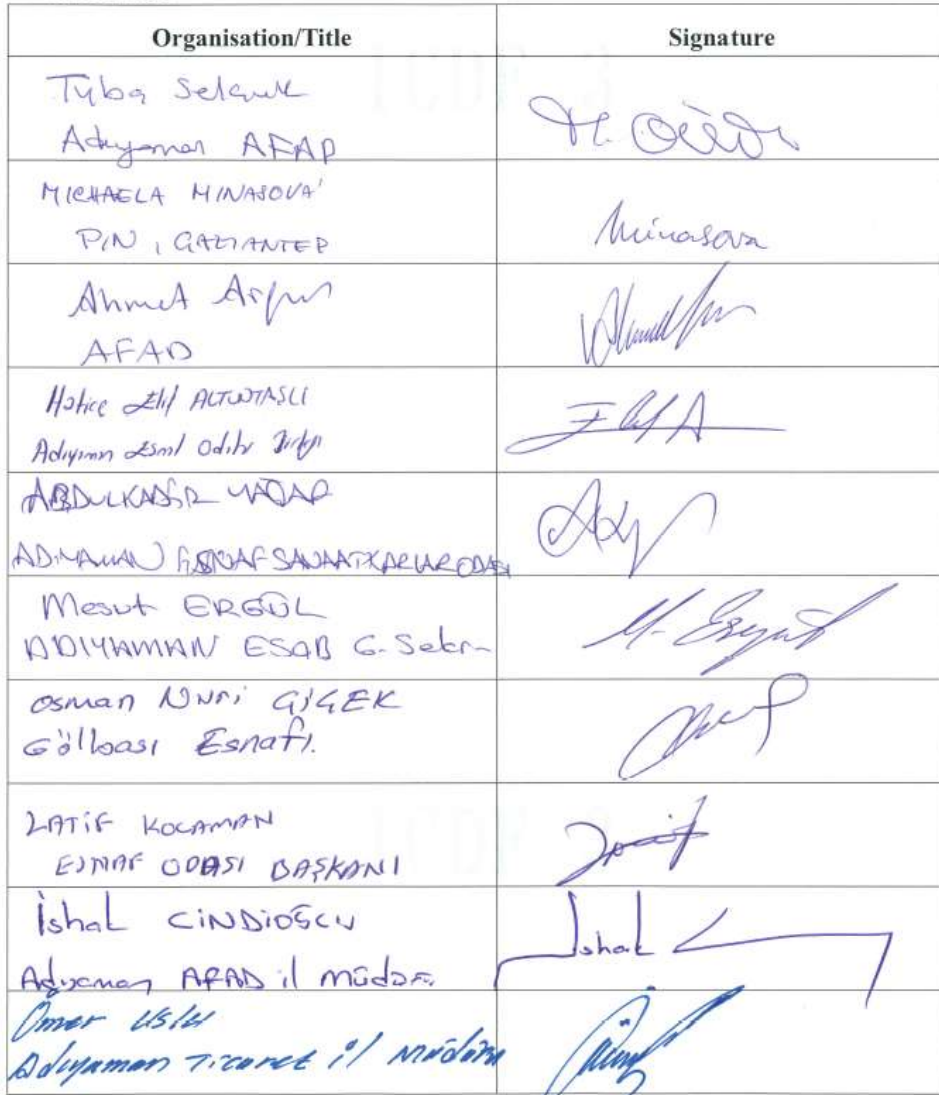 Organisation/Title Signature
Tuba Selçuk
Adıyaman AFAD
MICHAELA MINASOVA'
PIN, GAZIANTEP Minasova
Ahmet
AFAD
Hatice Elif ALTUNTAŞLI
Adıyaman Esnaf Odalar Birliği
ABDULKADİR YAŞAR
ADIYAMAN ESNAF SANAATKARLAR ODASI
Mesut ERGÜL
ADIYAMAN ESOB G. Sekr.
Osman Nuri ÇİÇEK
Gölbaşı Esnafı.
LATİF KOCAMAN
ESNAF ODASI BAŞKANI
İshak CİNDİOĞLU Ishak
Adıyaman AFAD il müdürü
Ömer USLU
Adıyaman Ticaret il müdürü